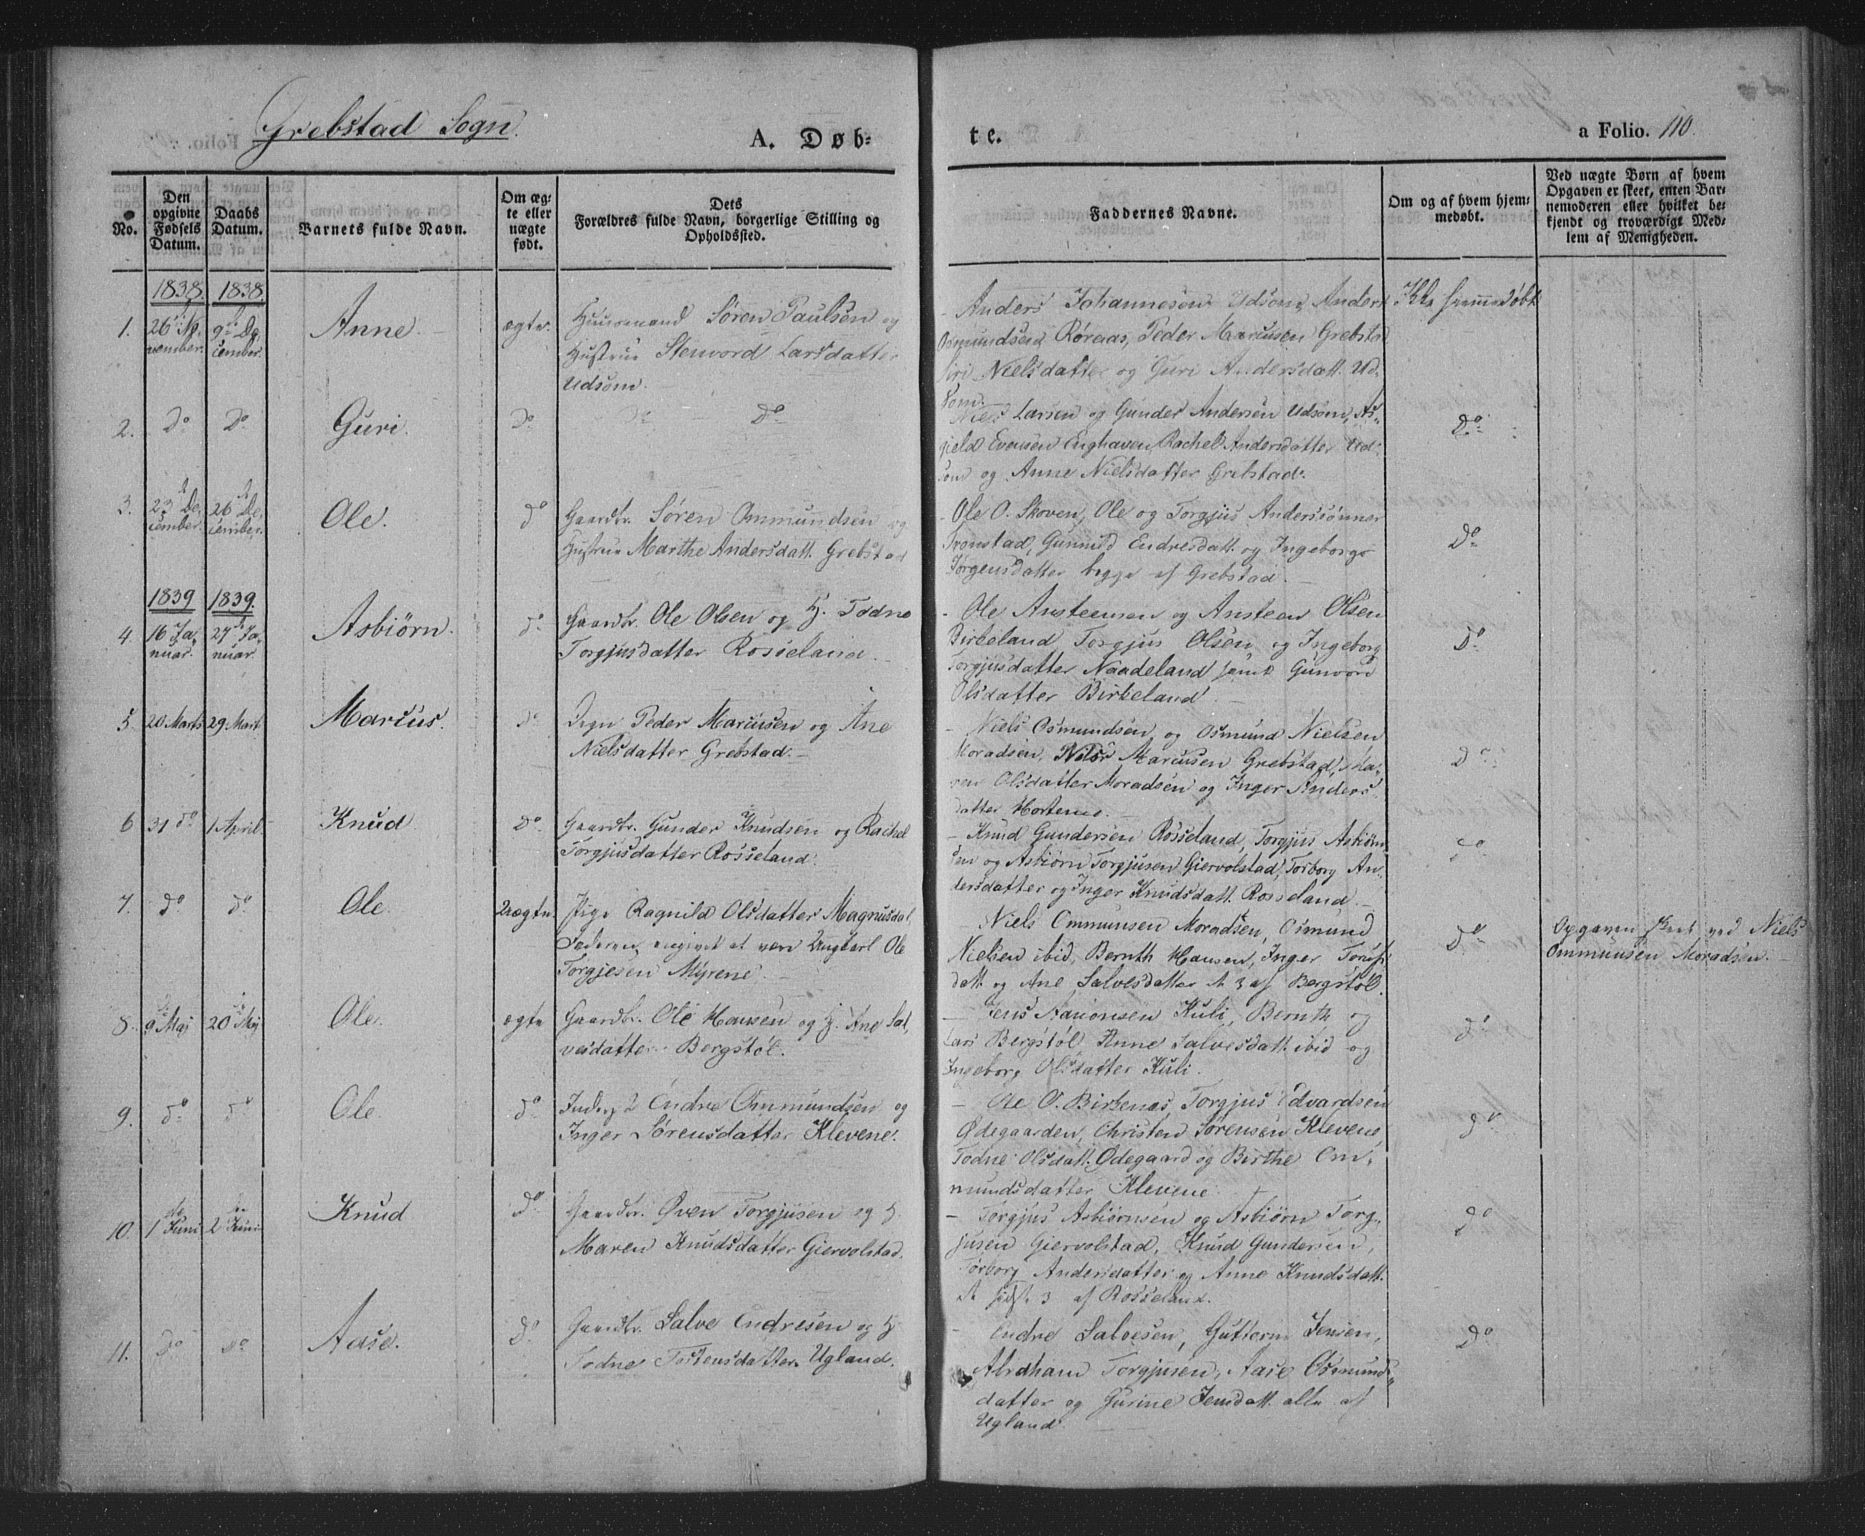 Grebstad Sogn.
A. Døb-
te.
a Folio. 110.
No.
Den opgivne Fødsels Datum.
Daabs Datum.
Barnets fulde Navn.
Om ægte eller uægte født.
Dets Forældres fulde Navn, borgerlige Stilling og Opholdssted.
Faddernes Navne.
Om og af hvem hjemmedøbt.
Ved uægte Børn af hvem Opgaven er skeet, enten Barnemoderen eller hvilket bekjendt og troværdigt Medlem af Menigheden.
1838. 1838.
1. 26 November. 9 December. Anne ægte Huusmand Søren Paulsen og
Hustrue Stenvord Larsdatter
Udsom.
Anders Johannesen Udsom, Anders
Osmundsen Røraas, Peder Marcusen Grebstad
Siri Nielsdatter og Guri Andersdatt. Ud-
som.
Ikke hjemmedøbt
2. Do Do Guri. Do Do Do
Niels Larsen og Gunder Andersen Udsom, As-
Evensen Enghaven, Rachel Andersdatter Ud-
som og Anne Nielsdatter Grebstad.
Do
3. 23 December. 26 December. Ole. do Gaardbr. Søren Ommundsen og
Hustrue Marthe Andersdatt. Grebstad
- Ole O. Skoven, Ole og Torgjus Anderssønner
Tronstad, Gunnild Endresdatt. og Ingeborg
Jørgensdatter begge af Grebstad.
Do
1839 1839.
4. 16 Januar. 27 Januar. Asbiörn. do Gaardbr. Ole Olsen og H. Todne
Torgjusdatter Rosseland.
- Ole Ansteensen og Ansteen Olsen
Birkeland, Torgjus Olsen og Ingeborg
Torgjusdatter Naadeland samt Gunvor
Olsdatter Birkeland
Do
5. 20 Marts 29 Mart. Marcus. do Peder Marcusen og Ane
Nielsdatter Grebstad.
- Niels Osmundsen og Osmund Nielsen
Moradsen, Marcusen Grebstad, Ma-
ren Olsdatter Moradsen og Inger Anders-
datter
Do
6 31 do 1 April Knud Do Gaardbr. Gunder Knudsen og Rachel
Torgjusdatter Rosseland.
- Knud Gundersen Rosseland, Torgjus Asbiörn-
sen og Asbiörn Torgjusen Giervolstad, Torborg An-
dersdatter og Inger Knudsdatt. Rosseland.
do
7. do do Ole. Uægte Pige Ragnild Olsdatter Magnusdal
Faderen angivet at være Ungkarl Ole
Torgjesen Myrene
- Niels Ommunsen Moradsen, Osmund
Nielsen ibid, Bernth Hansen, Inger
datt. og Ane Salvesdatter de 3 af Bergstøl.
do
Opgaven skeet ved Niels
Ommunsen Moradsen.
8. 9 Maj 20 Maj Ole. ægte Gaardbr. Ole Hansen og H. Ane Sal-
vesdatter Bergstøl.
- Jens Aanonsen Kuli, Bernth og
Lars Bergstøl, Anne Salvesdatt. ibid og
Ingeborg Olsdatter Kuli.
do
9. do do Ole. do Inds. Endre Ommundsen og
Inger Sørensdatter Klevene.
- Ole O. Birkenes, Torgjus Edvardsen
Ødegaarden, Christen Sørensen Klevene,
Todne Olsdatt. Ødegaard og Birthe Om-
mundsdatter Klevene
do
10. 1 Juni 2 Juni Knud do Gaardbr. Øven Torgjusen og H.
Maren Knudsdatter Giervolstad.
- Torgjus Asbiörnsen og Asbiörn Torg-
jusen Giervolstad, Knud Gundersen,
Torborg Andersdatter og Anne Knudsdatt.
de sidste 3 af Rosseland.
do
11. do do Aase. do Gaardbr. Salve Endresen og H
Todne Torkensdatter Ugland.
- Endre Salvesen, Guttorm Jensen,
Abraham Torgjusen, Aase Osmunds-
datter og Gurine Jensdatt. alle af
Ugland.
do